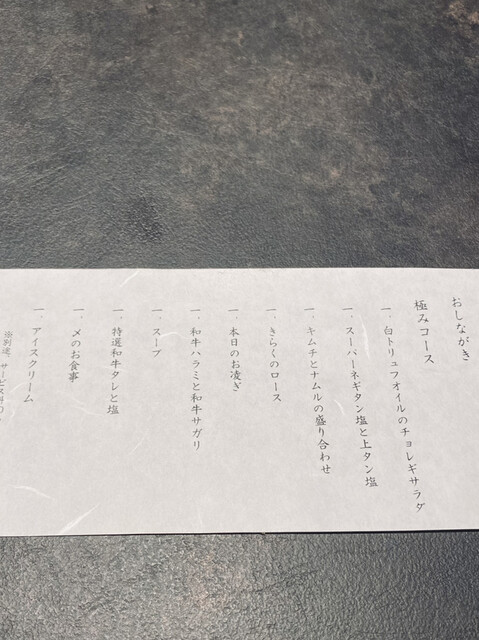 おしながき
極みコース
一、白トリュフオイルのチョレギサラダ
一、スーパーネギタン塩と上タン塩
一、キムチとナムルの盛り合わせ
一、きらくのロース
一、本日のお凌ぎ
一、和牛ハラミと和牛サガリ
一、スープ
一、特選和牛タレと塩
一、〆のお食事
一、アイスクリーム
※別途、サービス料